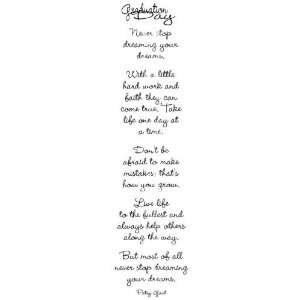 Graduation
Day
Never stop
dreaming your
dreams.
With a little
hard work and
faith they can
come true. Take
life one day at
a time.
Don't be
afraid to make
mistakes; that's
how you grow.
Live life
to the fullest and
always help others
along the way.
But most of all
never stop dreaming
your dreams.
Patsy